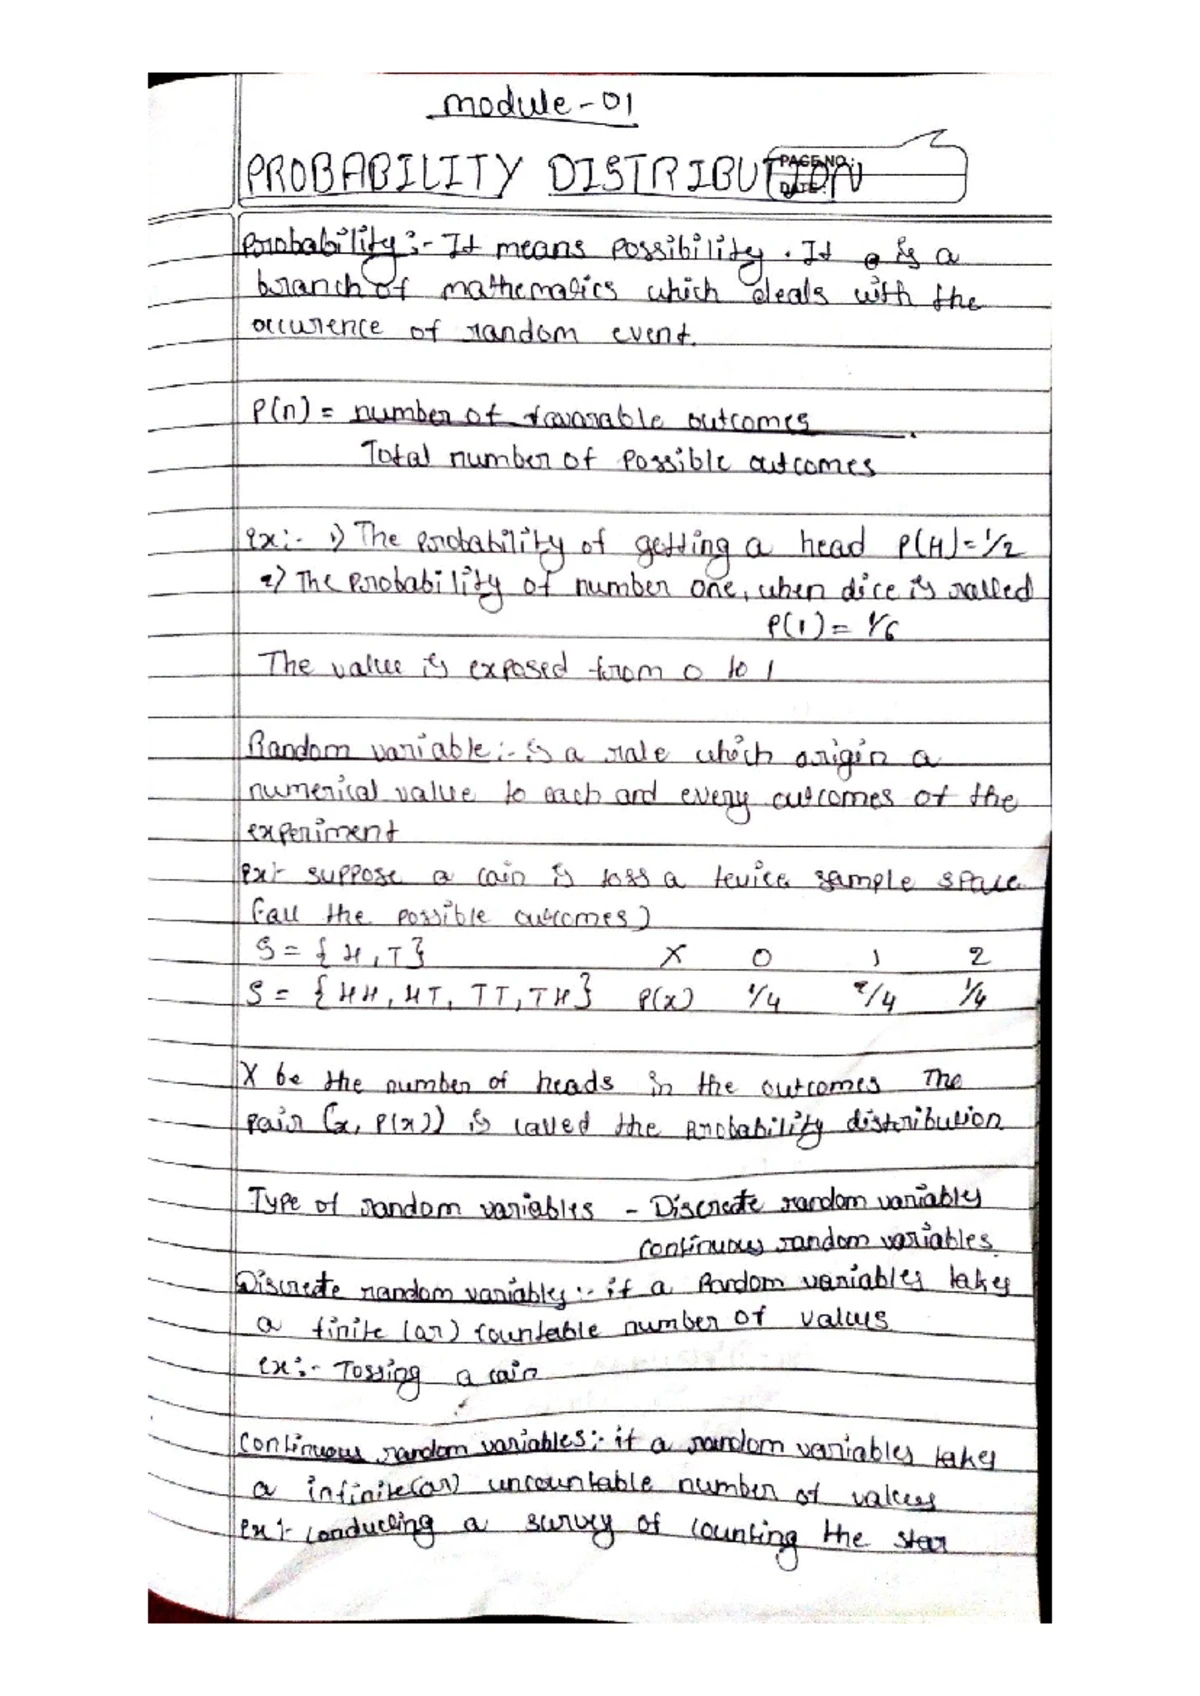 module-01
PROBABILITY DISTRIBUTION
PAGE NO.:
DATE:
Probability:- It means possibility. It is a
branch of mathematics which deals with the
occurence of random event.
P(n) = number of favorable outcomes
Total number of possible outcomes
ex:- 1) The probability of getting a head P(H)=1/2
2) The probability of number one, when dice is rolled
P(1) = 1/6
The value is exposed from 0 to 1
Random variable:- is a rale which origin a
numerical value to each and every outcomes of the
experiment
ex:- suppose a coin is toss a tevice sample space
(all the possible outcomes)
S = { H, T } X 0 1 2
S = { HH, HT, TT, TH } P(x) 1/4 2/4 1/4
X be the number of heads in the outcomes The
pair (x, P(x)) is called the probability distribution
Type of random variables - Discrete random variables
continuous random variables.
Discrete random variables:- if a Random variables takes
a finite (or) countable number of values
ex:- Tossing a coin
Continuous random variables:- if a random variables takes
a infinite(or) uncountable number of values
ex:- conducting a survey of counting the star